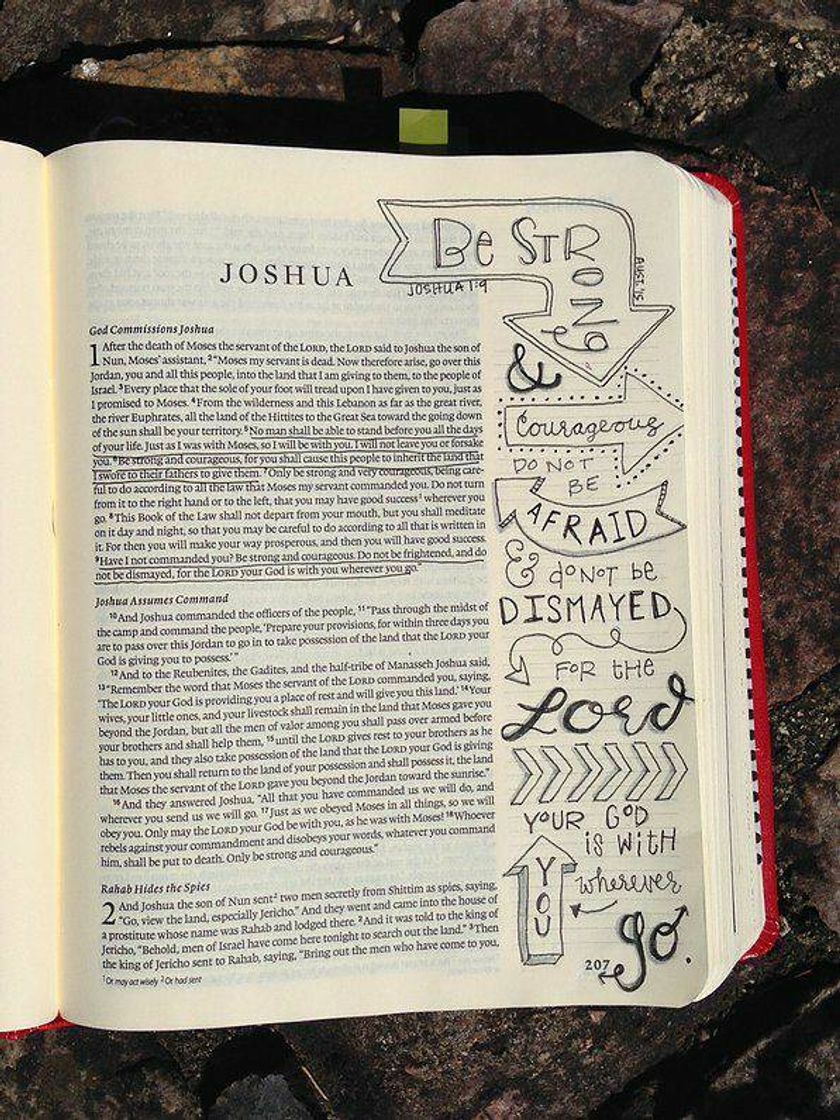 JOSHUA
God Commissions Joshua
1 After the death of Moses the servant of the LORD, the LORD said to Joshua the son of
Nun, Moses' assistant, 2 "Moses my servant is dead. Now therefore arise, go over this
Jordan, you and all this people, into the land that I am giving to them, to the people of
Israel. 3 Every place that the sole of your foot will tread upon I have given to you, just as
I promised to Moses. 4 From the wilderness and this Lebanon as far as the great river,
the river Euphrates, all the land of the Hittites to the Great Sea toward the going down
of the sun shall be your territory. 5 No man shall be able to stand before you all the days
of your life. Just as I was with Moses, so I will be with you. I will not leave you or forsake
you. 6 Be strong and courageous, for you shall cause this people to inherit the land that
I swore to their fathers to give them. 7 Only be strong and very courageous, being care-
ful to do according to all the law that Moses my servant commanded you. Do not turn
from it to the right hand or to the left, that you may have good success 1 wherever you
go. 8 This Book of the Law shall not depart from your mouth, but you shall meditate
on it day and night, so that you may be careful to do according to all that is written in
it. For then you will make your way prosperous, and then you will have good success.
9 Have I not commanded you? Be strong and courageous. Do not be frightened, and do
not be dismayed, for the LORD your God is with you wherever you go."
Joshua Assumes Command
10 And Joshua commanded the officers of the people, 11 "Pass through the midst of
the camp and command the people, 'Prepare your provisions, for within three days you
are to pass over this Jordan to go in to take possession of the land that the LORD your
God is giving you to possess.'"
12 And to the Reubenites, the Gadites, and the half-tribe of Manasseh Joshua said,
13 "Remember the word that Moses the servant of the LORD commanded you, saying,
'The LORD your God is providing you a place of rest and will give you this land.' 14 Your
wives, your little ones, and your livestock shall remain in the land that Moses gave you
beyond the Jordan, but all the men of valor among you shall pass over armed before
your brothers and shall help them, 15 until the LORD gives rest to your brothers as he
has to you, and they also take possession of the land that the LORD your God is giving
them. Then you shall return to the land of your possession and shall possess it, the land
that Moses the servant of the LORD gave you beyond the Jordan toward the sunrise."
16 And they answered Joshua, "All that you have commanded us we will do, and
wherever you send us we will go. 17 Just as we obeyed Moses in all things, so we will
obey you. Only may the LORD your God be with you, as he was with Moses! 18 Whoever
rebels against your commandment and disobeys your words, whatever you command
him, shall be put to death. Only be strong and courageous."
Rahab Hides the Spies
2 And Joshua the son of Nun sent 2 two men secretly from Shittim as spies, saying,
"Go, view the land, especially Jericho." And they went and came into the house of
a prostitute whose name was Rahab and lodged there. 2 And it was told to the king of
Jericho, "Behold, men of Israel have come here tonight to search out the land." 3 Then
the king of Jericho sent to Rahab, saying, "Bring out the men who have come to you,
1 Or may act wisely 2 Or had sent
207
Be STRONG
JOSHUA 1:9
AUG.'15
&
Courageous
DO NOT
BE
AFRAID
& doNOT be
DISMAYED
FOR the
Lord
YOUR GOD
is WITH
wherever
YOU
go.